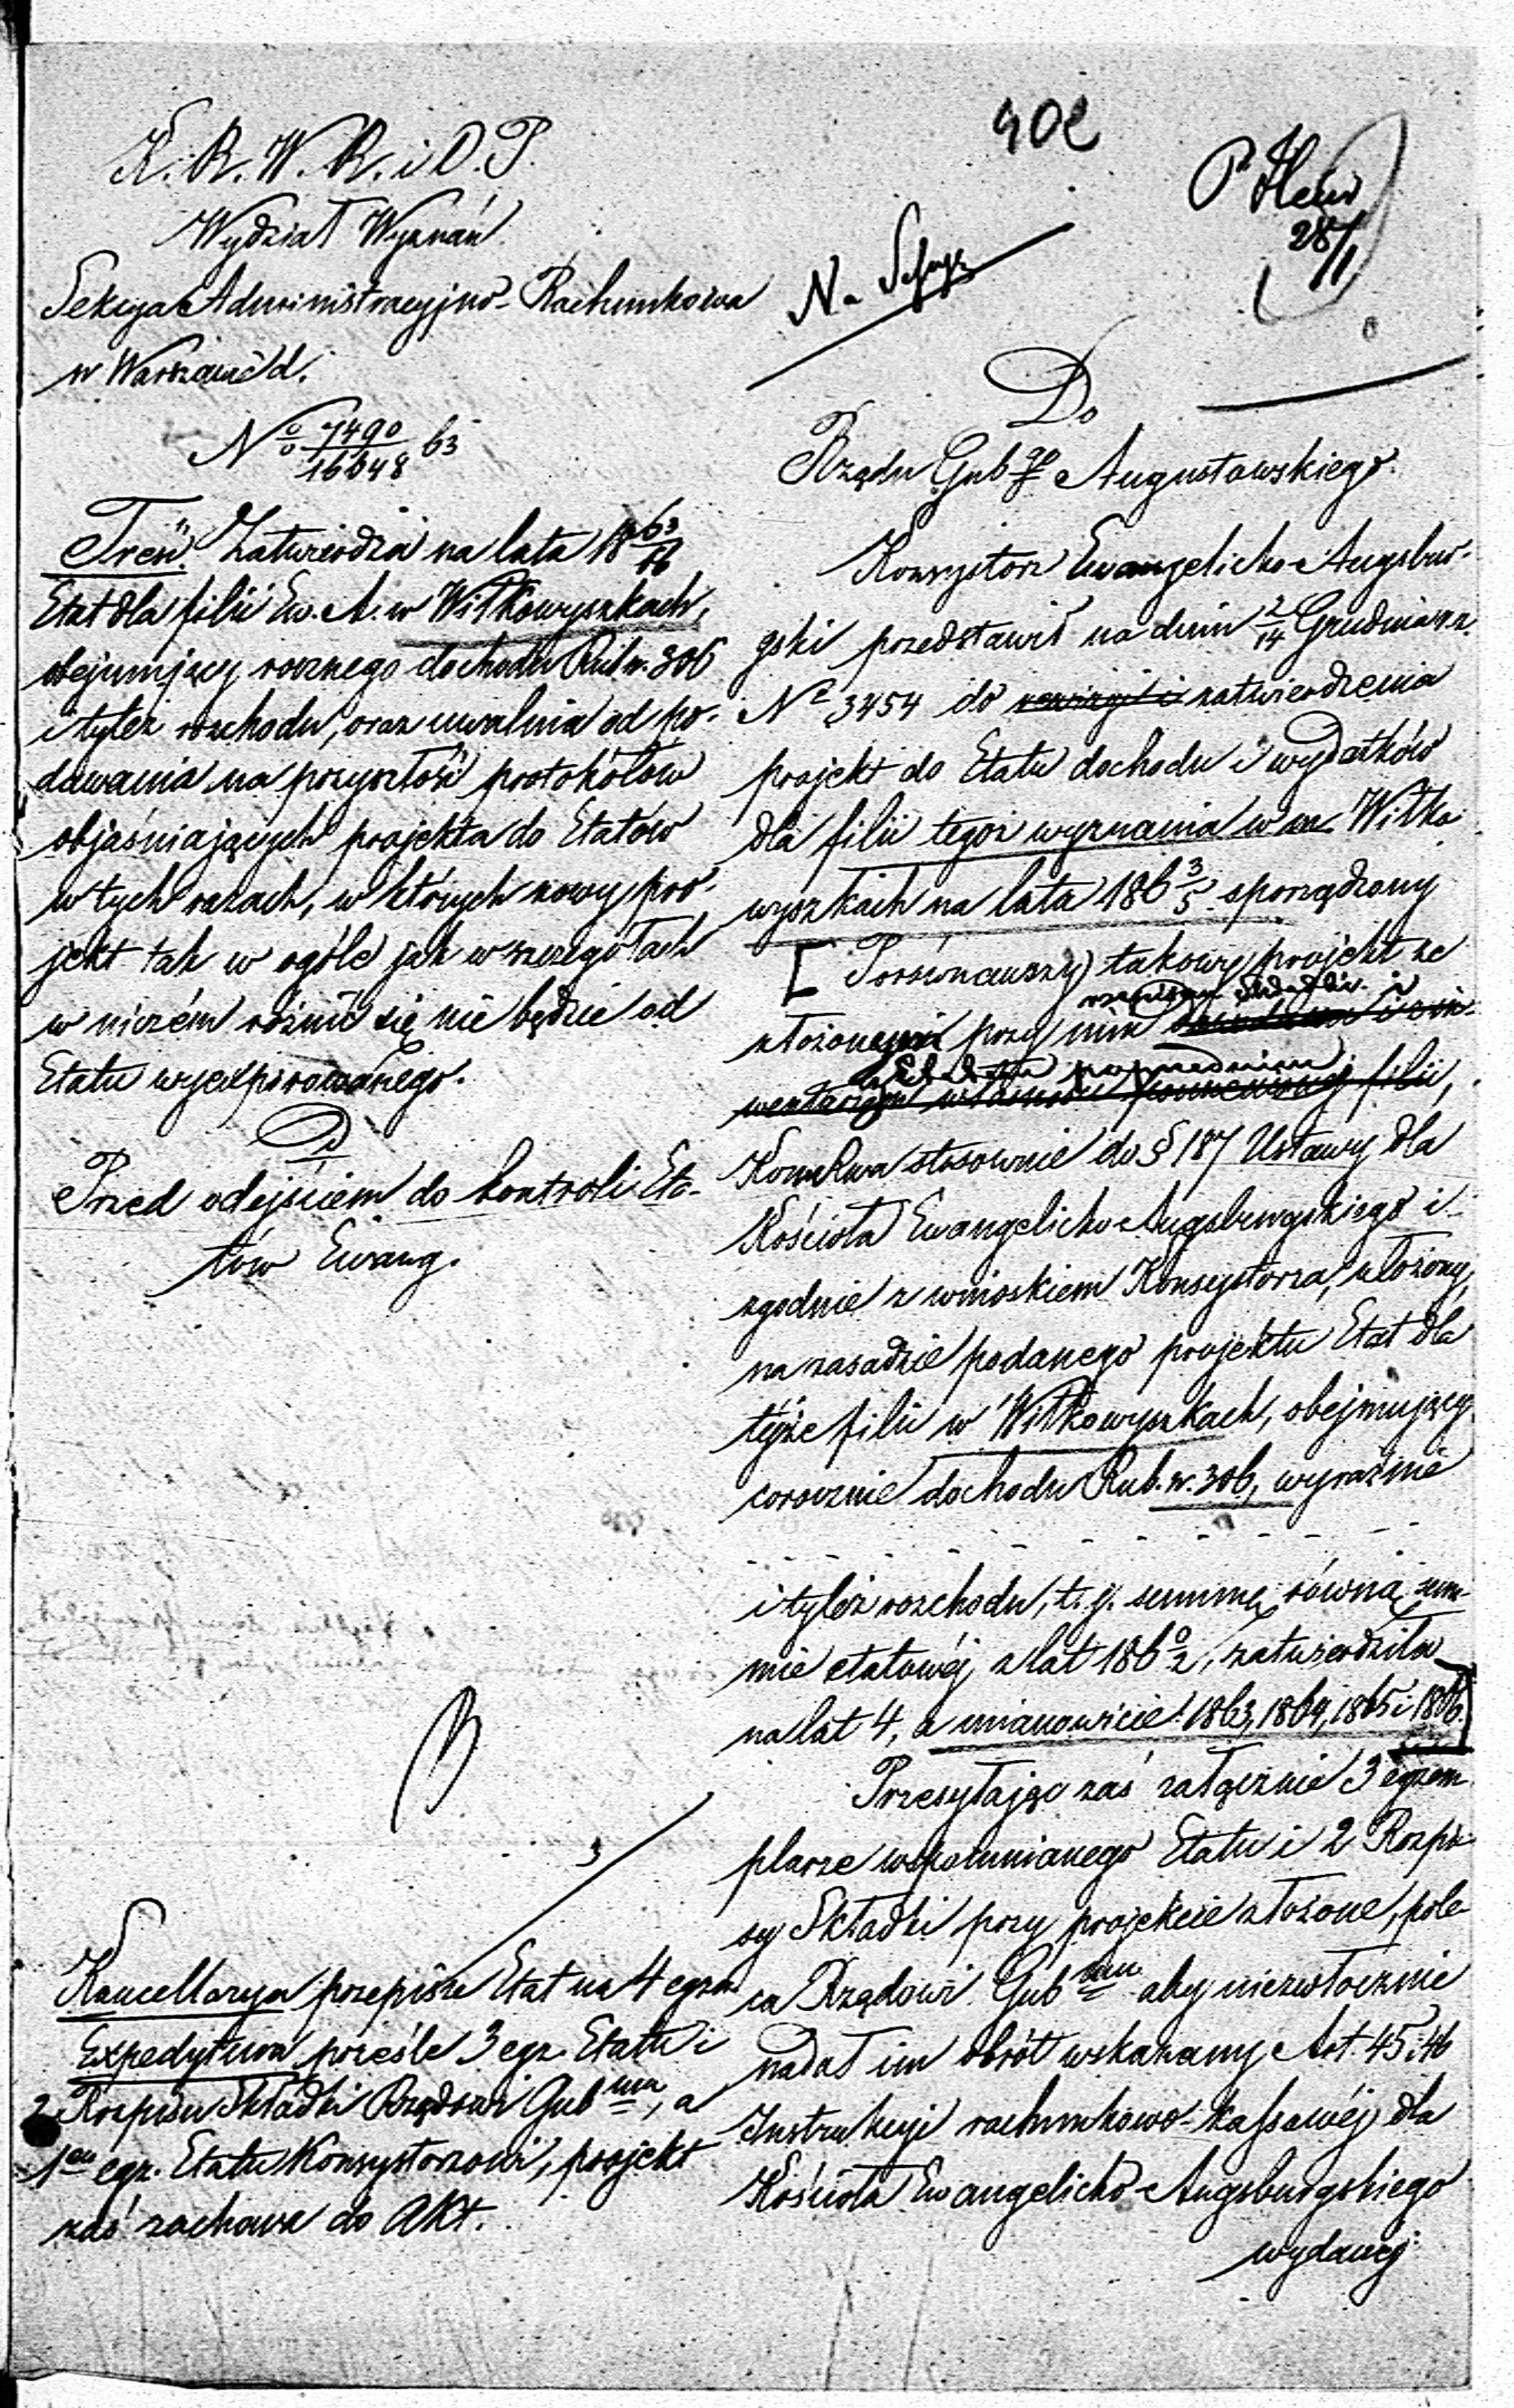 402
K. R. W. R. i O. P.
Wydział Wyznań
Sekcya Administracyjno-Rachunkowa
w Warszawie d.
No 7490/16648 63
Treść. Zatwierdza na lata 1863/66
Etat dla filii Ew. A. w Wiłkowyszkach,
obejmujący rocznego dochodu Rub. sr. 306
i tyleż rozchodu, oraz uwalnia od po-
dawania na przyszłość protokółów
objaśniających projekta do Etatów
w tych razach, w których nowy pro-
jekt tak w ogóle jak w szczegółach
w niczém różnić się nie będzie od
Etatu wyexpirowanego.
Przed odejściem do kontroli Eta-
tów Ewang.
Kancellarya przepisze Etat na 4 egz.
Expedytura prześle 3 egz. Etatu i
2 Rozpisu Składki Rządowi Gub mu, a
1en egz. Etatu Konsystorzowi, projekt
zaś zachowa do Akt.
28/1
Do
Rządu Gub go Augustowskiego.
Konsystorz Ewangelicko-Augsbur-
gski przedstawił na dniu 2/14 Grudnia r. z.
No 3454 do rewizyi i zatwierdzenia
projekt do Etatu dochodu i wydatków
dla filii tegoż wyznania w m. Wiłko
wyszkach na lata 186 3/5 sporządzony
[ Porównawszy takowy projekt ze
rozpisem składki i
złożonym przy nim
z Etatem poprzednim
filii,
Kom. Rwa stosownie do § 187 Ustawy dla
Kościoła Ewangelicko-Augsburgskiego i
zgodnie z wnioskiem Konsystorza, ułożony
na zasadzie podanego projektu Etat dla
téjże filii w Wiłkowyszkach, obejmujący
corocznie dochodu Rub. sr. 306, wyraźnie
i tyleż rozchodu, t. j. summę równą sum-
mie etatowéj z lat 186 0/2, zatwierdziła
na lat 4, a mianowicie: 1863, 1864, 1865 i 1866.]
Przesyłając zaś załącznie 3 egzem
plarze wspomnianego Etatu i 2 Rozpi-
sy Składki przy projekcie złożone, pole
ca Rządowi Gub mu aby niezwłocznie
nadał im obrót wskazany Art. 45 i 46
Instrukcyi rachunkowo-kassowéj dla
Kościoła Ewangelicko-Augsburgskiego
wydanej